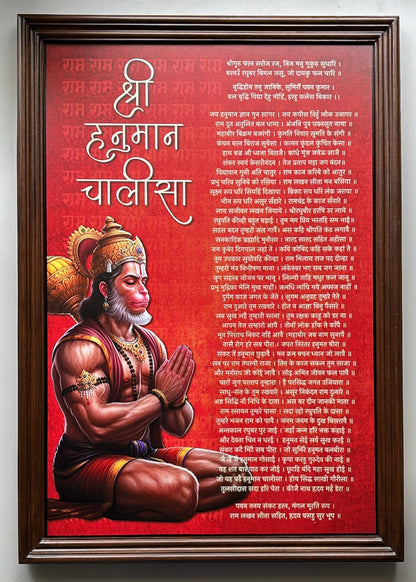 श्री
हनुमान
चालीसा
श्रीगुरु चरन सरोज रज, निज मनु मुकुरु सुधारि ।
बरनउँ रघुबर बिमल जसु, जो दायकु फल चारि ॥
बुद्धिहीन तनु जानिके, सुमिरौं पवन कुमार ।
बल बुद्धि विद्या देहु मोहिं, हरहु कलेस बिकार ।।
जय हनुमान ज्ञान गुन सागर । जय कपीस तिहुँ लोक उजागर ॥
राम दूत अतुलित बल धामा । अंजनि पुत्र पवनसुत नामा ॥
महाबीर बिक्रम बजरंगी । कुमति निवार सुमति के संगी ॥
कंचन बरन बिराज सुबेसा । कानन कुंडल कुंचित केसा ॥
हाथ बज्र औ ध्वजा बिराजै । काँधे मूँज जनेऊ साजै ॥
शंकर स्वयं केसरीनंदन । तेज प्रताप महा जग बंदन ॥
विद्यावान गुनी अति चातुर । राम काज करिबे को आतुर ॥
प्रभु चरित्र सुनिबे को रसिया । राम लखन सीता मन बसिया ॥
सूक्ष्म रूप धरि सियहिं दिखावा । बिकट रूप धरि लंक जरावा ॥
भीम रूप धरि असुर सँहारे । रामचंद्र के काज सँवारे ॥
लाय सजीवन लखन जियाये । श्रीरघुबीर हरषि उर लाये ॥
रघुपति कीन्ही बहुत बड़ाई । तुम मम प्रिय भरतहि सम भाई ॥
सहस बदन तुम्हरो जस गावैं । अस कहि श्रीपति कंठ लगावैं ॥
सनकादिक ब्रह्मादि मुनीसा । नारद सारद सहित अहीसा ॥
जम कुबेर दिगपाल जहाँ ते । कबि कोबिद कहि सके कहाँ ते ॥
तुम उपकार सुग्रीवहिं कीन्हा । राम मिलाय राज पद दीन्हा ॥
तुम्हरो मंत्र विभीषण माना । लंकेस्वर भए सब जग जाना ॥
जुग सहस्त्र जोजन पर भानू । लील्यो ताहि मधुर फल जानू ॥
प्रभु मुद्रिका मेलि मुख माहीं । जलधि लाँघि गये अचरज नाहीं ॥
दुर्गम काज जगत के जेते । सुगम अनुग्रह तुम्हरे तेते ॥
राम दुआरे तुम रखवारे । होत न आज्ञा बिनु पैसारे ॥
सब सुख लहै तुम्हारी सरना । तुम रक्षक काहू को डर ना ॥
आपन तेज सम्हारो आपै । तीनों लोक हाँक ते काँपै ॥
भूत पिशाच निकट नहिं आवै । महाबीर जब नाम सुनावै ॥
नासै रोग हरे सब पीरा । जपत निरंतर हनुमत बीरा ॥
संकट ते हनुमान छुड़ावै । मन क्रम बचन ध्यान जो लावै ॥
सब पर राम तपस्वी राजा । तिन के काज सकल तुम साजा ॥
और मनोरथ जो कोई लावै । सोइ अमित जीवन फल पावै ॥
चारों जुग परताप तुम्हारा । है परसिद्ध जगत उजियारा ॥
साधु-संत के तुम रखवारे । असुर निकंदन राम दुलारे ॥
अष्ट सिद्धि नौ निधि के दाता । अस बर दीन जानकी माता ॥
राम रसायन तुम्हरे पासा । सदा रहो रघुपति के दासा ॥
तुम्हरे भजन राम को पावै । जनम जनम के दुख बिसरावै ॥
अन्तकाल रघुबर पुर जाई । जहाँ जन्म हरि भक्त कहाई ॥
और देवता चित्त न धरई । हनुमत सेई सर्ब सुख करई ॥
संकट कटै मिटै सब पीरा । जो सुमिरै हनुमत बलबीरा ॥
जै जै जै हनुमान गोसाईं । कृपा करहु गुरुदेव की नाई ॥
यह शत बार पाठ कर जोई । छूटहि बंदि महा सुख होई ॥
जो यह पढ़ै हनुमान चालीसा । होय सिद्धि साखी गौरीसा ॥
तुलसीदास सदा हरि चेरा । कीजै नाथ हृदय महँ डेरा ॥
पवन तनय संकट हरन, मंगल मूरति रूप ।
राम लखन सीता सहित, हृदय बसहु सुर भूप ॥